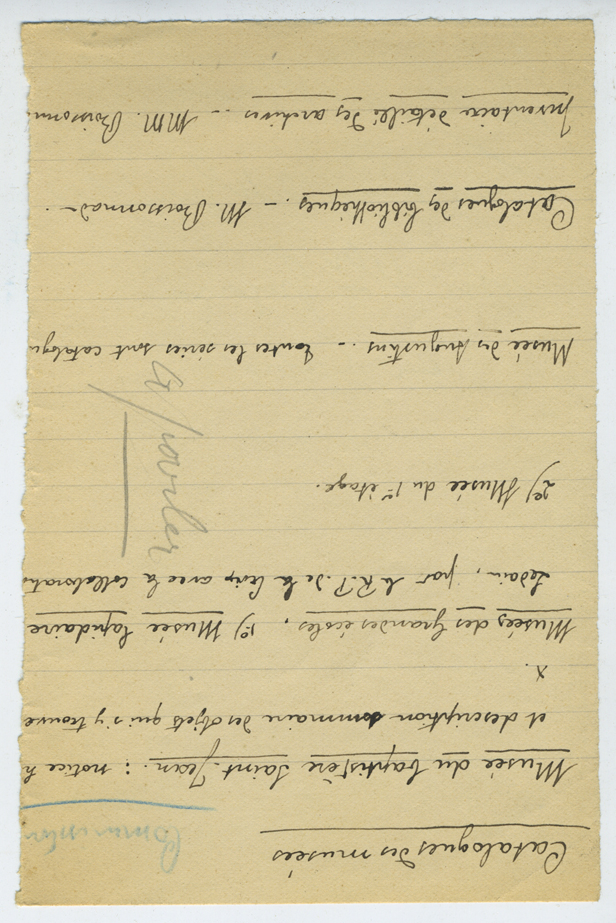 Catalogues des musées
Musée du baptistère Saint-Jean : notice h
et description sommaire des objets qui s'y trouve
x.
Musées des Grandes écoles, 1º) Musée lapidaire
Ledain, par le R.P. de la Croix avec la collaborati
2º) Musée du 1er étage.
Musée des Augustins. - toutes les séries sont catalogu
Catalogues des bibliothèques. - M. Boissonnad -
Inventaire détaillé des archives. - MM. Boissonn